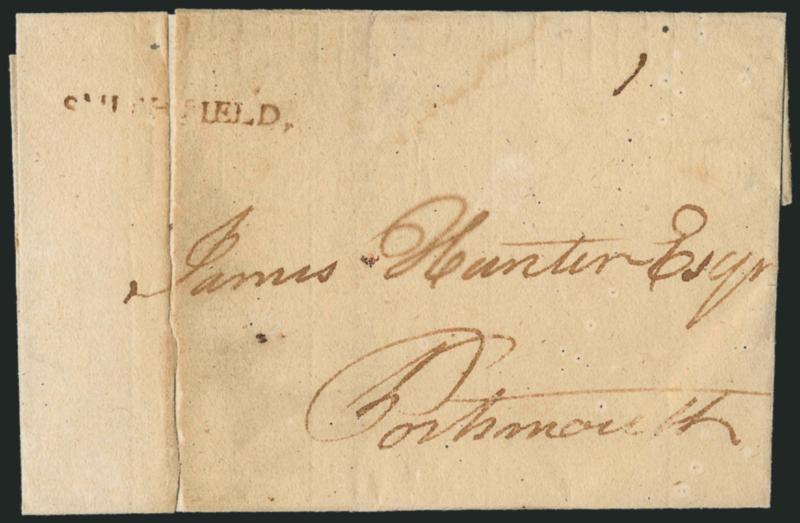 SMITHFIELD,
1
James Hunter Esqr
Portsmouth